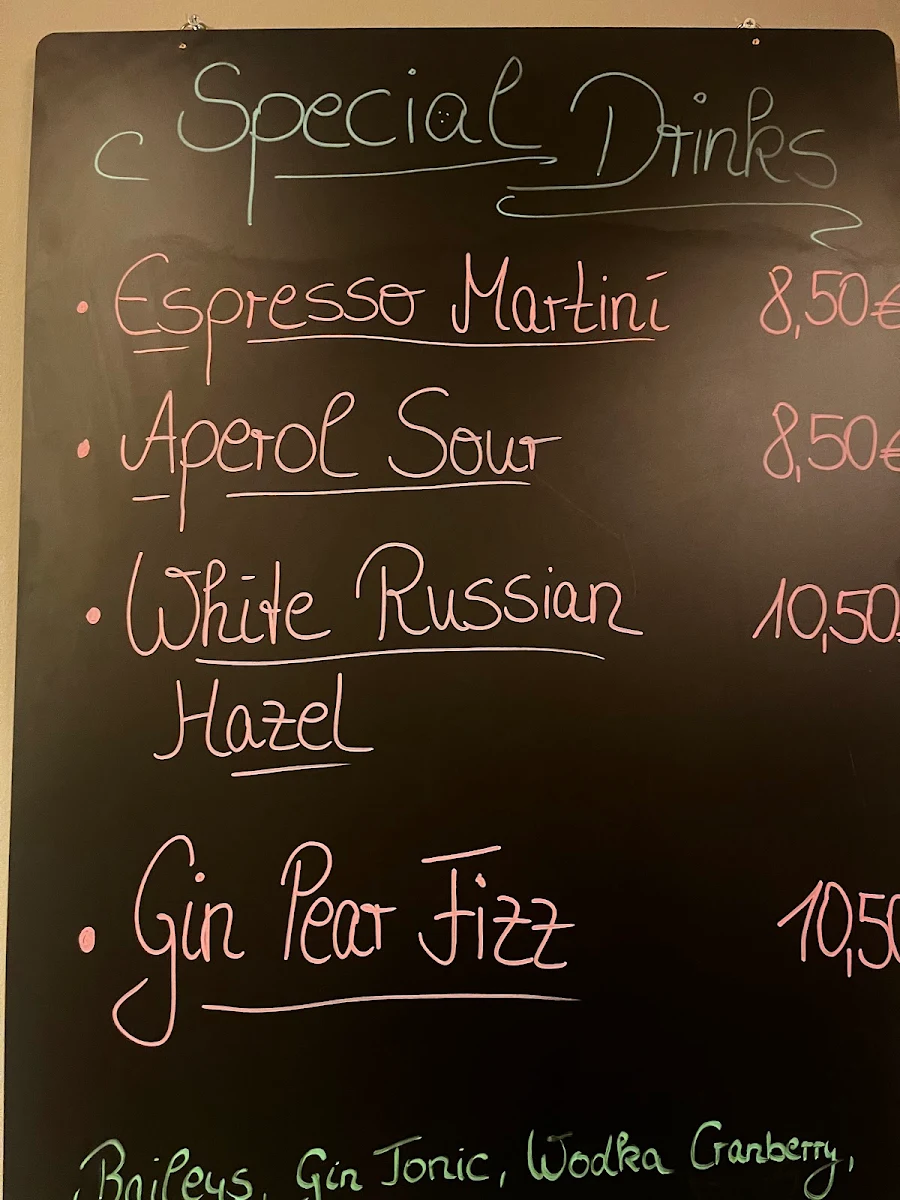 Special Drinks
• Espresso Martini 8,50€
• Aperol Sour 8,50€
• White Russian 10,50
Hazel
• Gin Pear Fizz 10,50
Baileys, Gin Tonic, Wodka Cranberry,